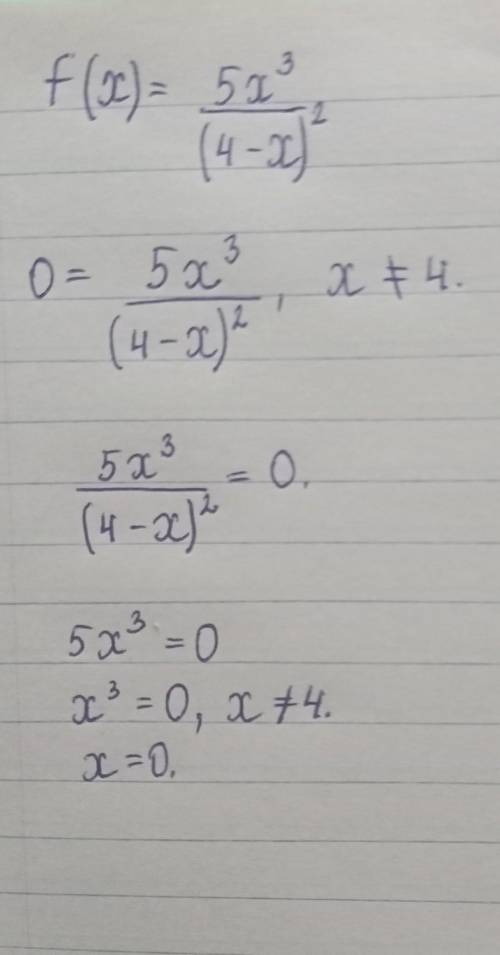 f(x) = 5x³/(4-x)²
0 = 5x³/(4-x)², x ≠ 4.
5x³/(4-x)² = 0.
5x³ = 0
x³ = 0, x ≠ 4.
x = 0.